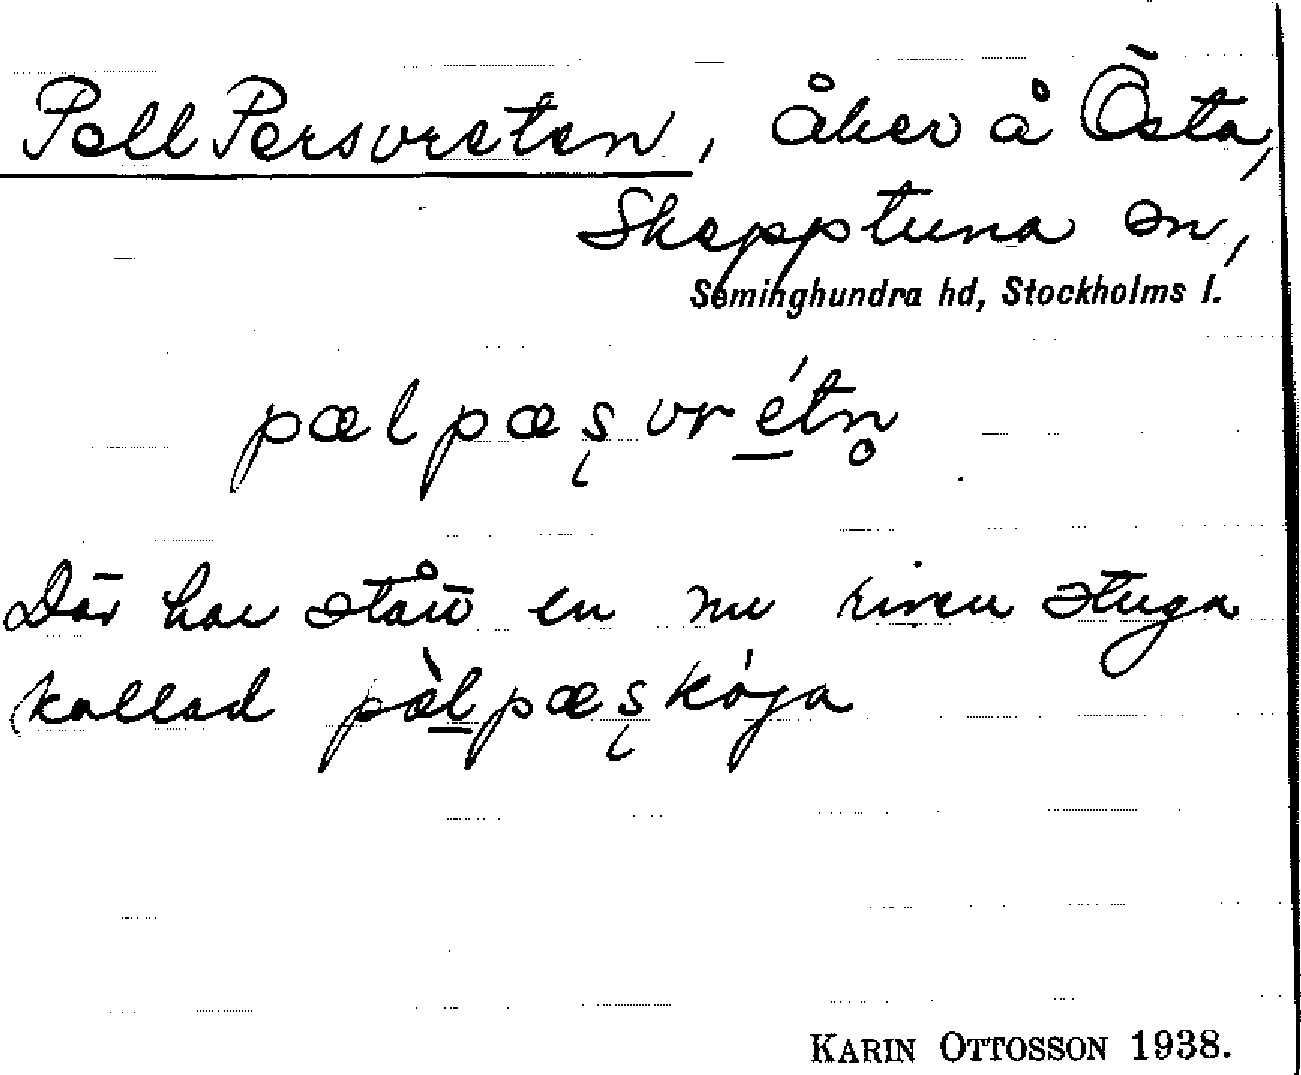 Pell Persvreten, åker å Östa,
Skepptuna sn,
Seminghundra hd, Stockholms l.
pælpæșvrétn̥
Där har stått en nu riven stuga
kallad pæ̀lpæșkója
KARIN OTTOSSON 1938.